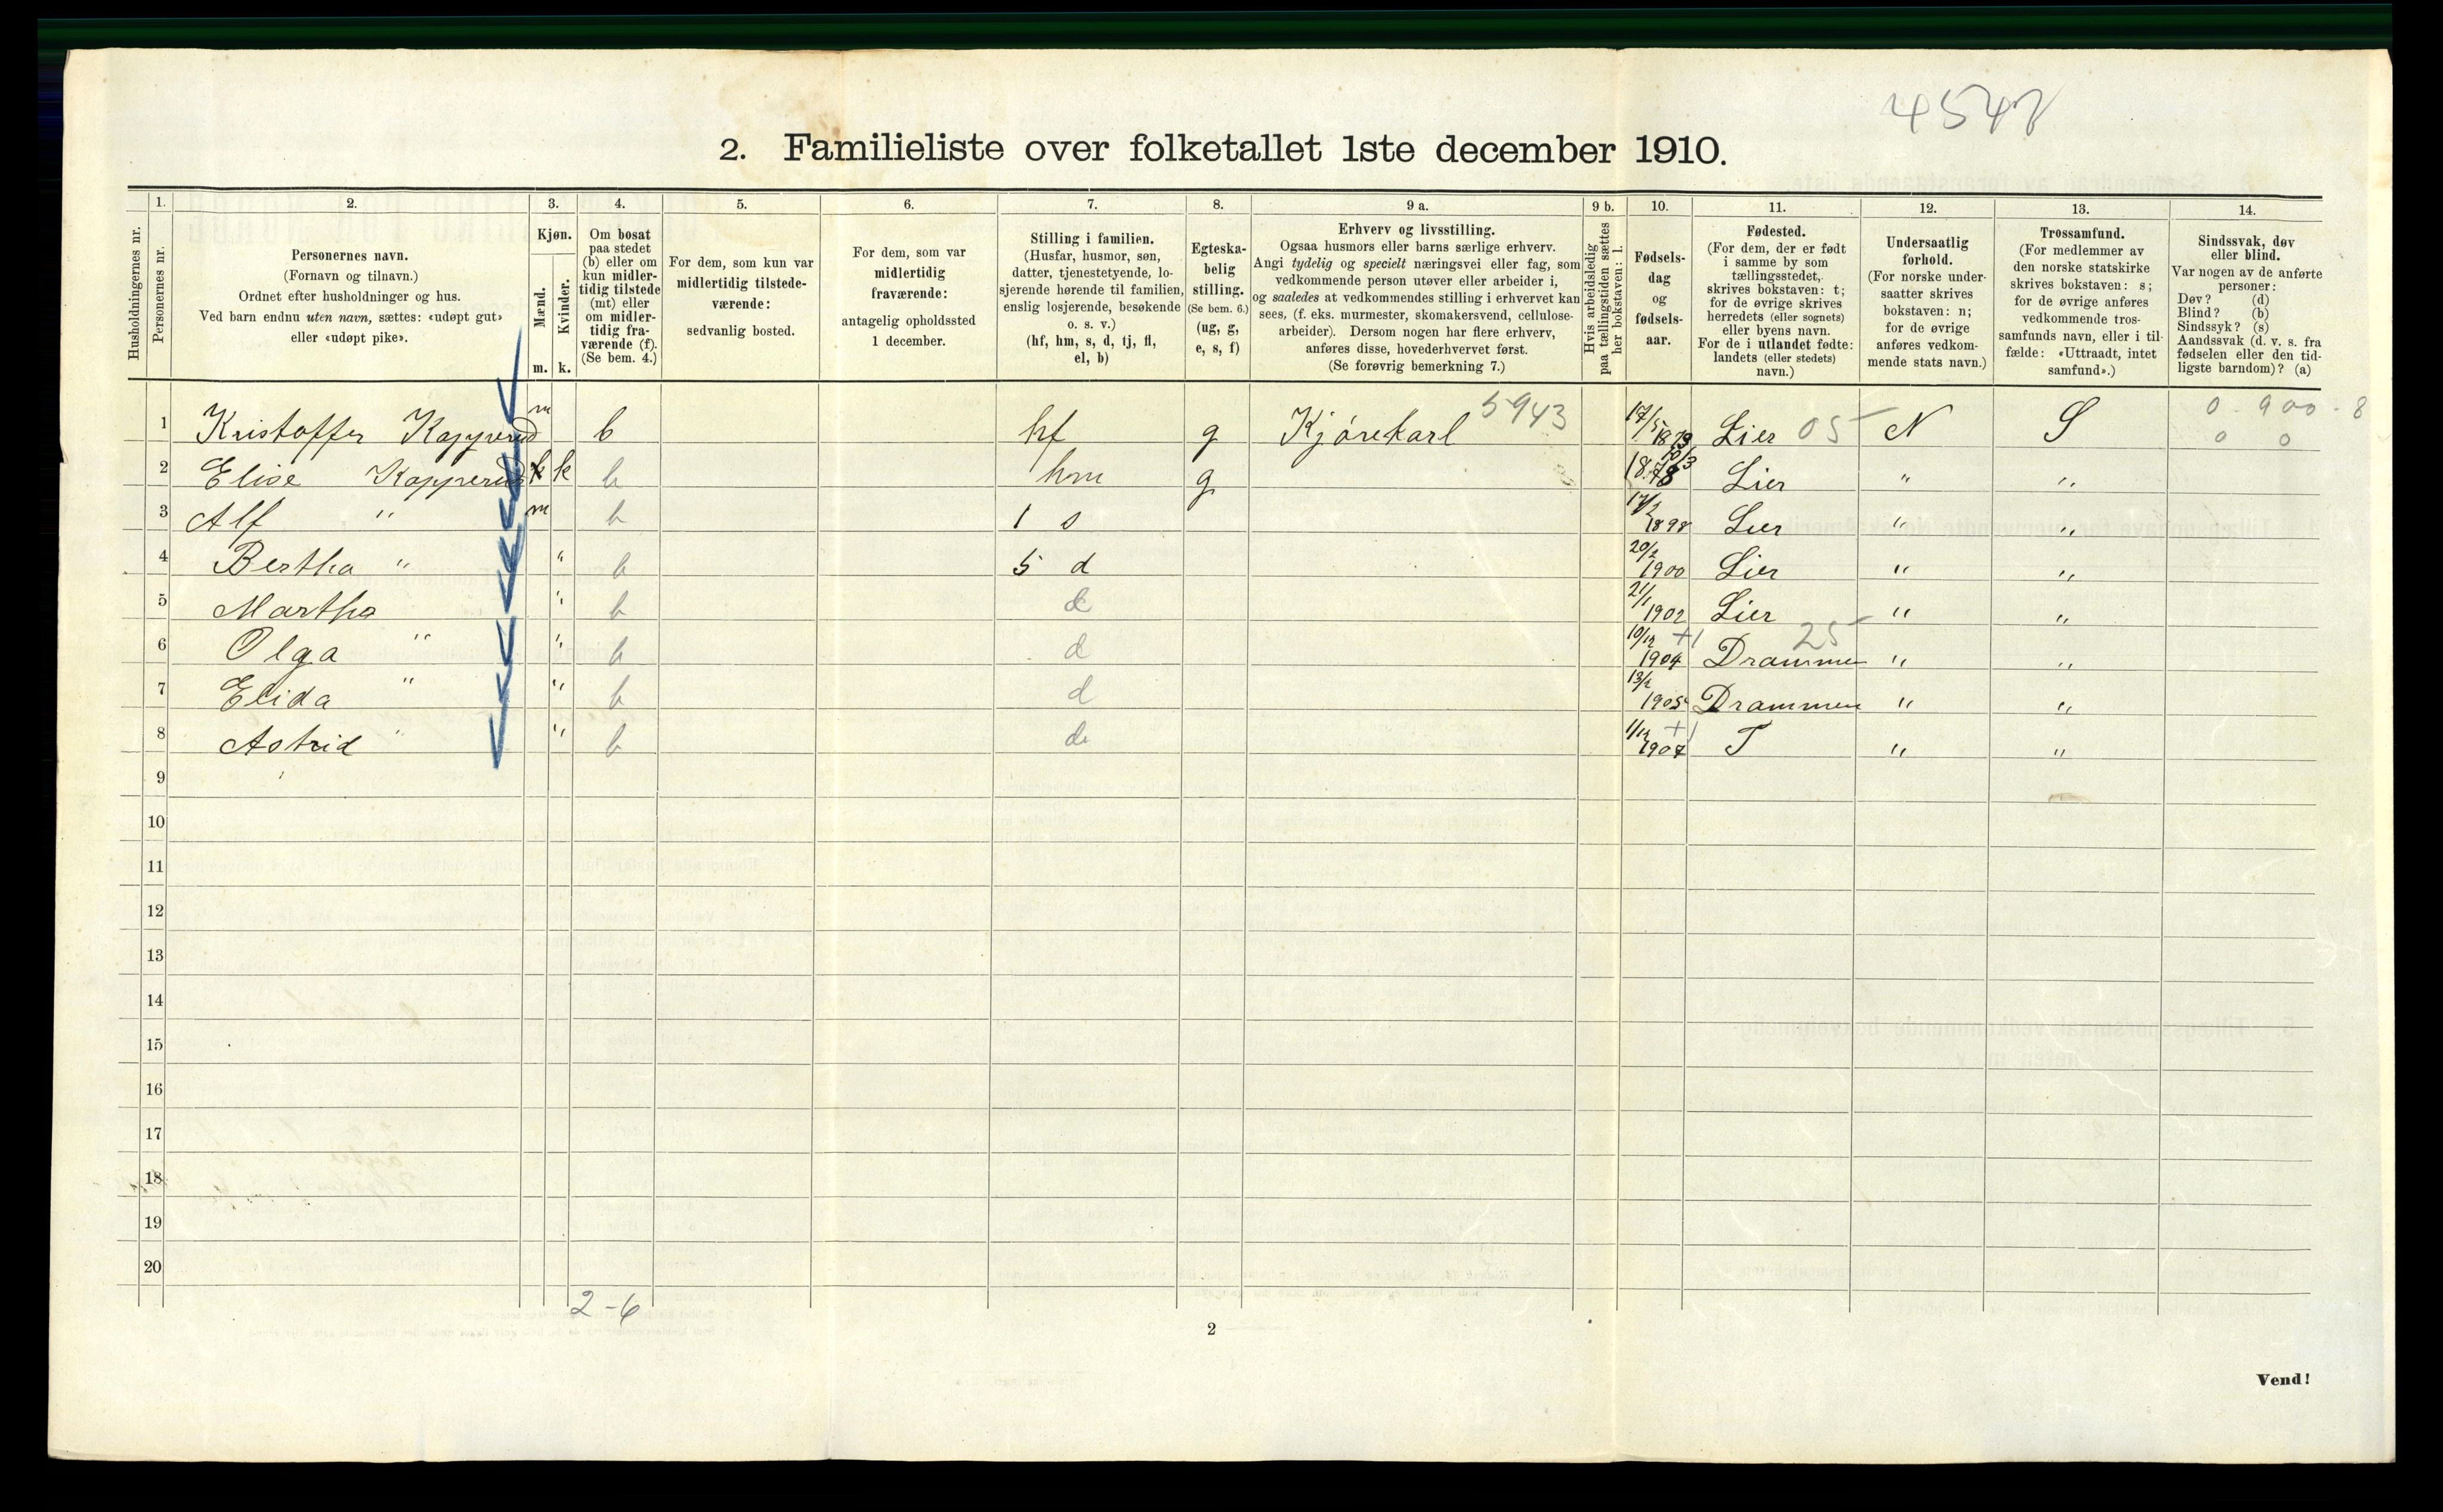 4548
2. Familieliste over folketallet 1ste december 1910.
1. 2. 3. 4. 5. 6. 7. 8. 9 a. 9 b. 10. 11. 12. 13. 14.
Husholdningernes nr.
Personernes nr.
Personernes navn.
(Fornavn og tilnavn.)
Ordnet efter husholdninger og hus.
Ved barn endnu uten navn, sættes: «udøpt gut»
eller «udøpt pike».
Kjøn.
Mænd.
m.
Kvinder.
k.
Om bosat
paa stedet
(b) eller om
kun midler-
tidig tilstede
(mt) eller
om midler-
tidig fra-
værende (f).
(Se bem. 4.)
For dem, som kun var
midlertidig tilstede-
værende:
sedvanlig bosted.
For dem, som var
midlertidig
fraværende:
antagelig opholdssted
1 december.
Stilling i familien.
(Husfar, husmor, søn,
datter, tjenestetyende, lo-
sjerende hørende til familien,
enslig losjerende, besøkende
o. s. v.)
(hf, hm, s, d, tj, fl,
el, b)
Egteska-
belig
stilling.
(Se bem. 6.)
(ug, g,
e, s, f)
Erhverv og livsstilling.
Ogsaa husmors eller barns særlige erhverv.
Angi tydelig og specielt næringsvei eller fag, som
vedkommende person utøver eller arbeider i,
og saaledes at vedkommendes stilling i erhvervet kan
sees, (f. eks. murmester, skomakersvend, cellulose-
arbeider). Dersom nogen har flere erhverv,
anføres disse, hovederhvervet først.
(Se forøvrig bemerkning 7.)
Hvis arbeidsledig
paa tællingstiden sættes
her bokstaven: l.
Fødsels-
dag
og
fødsels-
aar.
Fødested.
(For dem, der er født
i samme by som
tællingsstedet,
skrives bokstaven: t;
for de øvrige skrives
herredets (eller sognets)
eller byens navn.
For de i utlandet fødte:
landets (eller stedets)
navn.)
Undersaatlig
forhold.
(For norske under-
saatter skrives
bokstaven: n;
for de øvrige
anføres vedkom-
mende stats navn.)
Trossamfund.
(For medlemmer av
den norske statskirke
skrives bokstaven: s;
for de øvrige anføres
vedkommende tros-
samfunds navn, eller i til-
fælde: «Uttraadt, intet
samfund».)
Sindssvak, døv
eller blind.
Var nogen av de anførte
personer:
Døv? (d)
Blind? (b)
Sindssyk? (s)
Aandssvak (d. v. s. fra
fødselen eller den tid-
ligste barndom)? (a)
1 Kristoffer Kopperud m b hf g Kjørekarl 5943 17/5 1879 Lier 05 N S 0.900-8
0 0
2 Elise Kopperud k b hm g 1878 Lier " "
3 Alf " m b 1 s 1898 Lier " "
4 Bertha " " b 5 d 20/2 1900 Lier " "
5 Martha " b d 21/1 1902 Lier " "
6 Olga " " b d 10/12 +1 1904 Drammen 25 " "
7 Elida " " b d 1905 Drammen " "
8 Astrid " " b d 1/12 +1 1907 T " "
9
10
11
12
13
14
15
16
17
18
19
20
2-6
2
Vend!